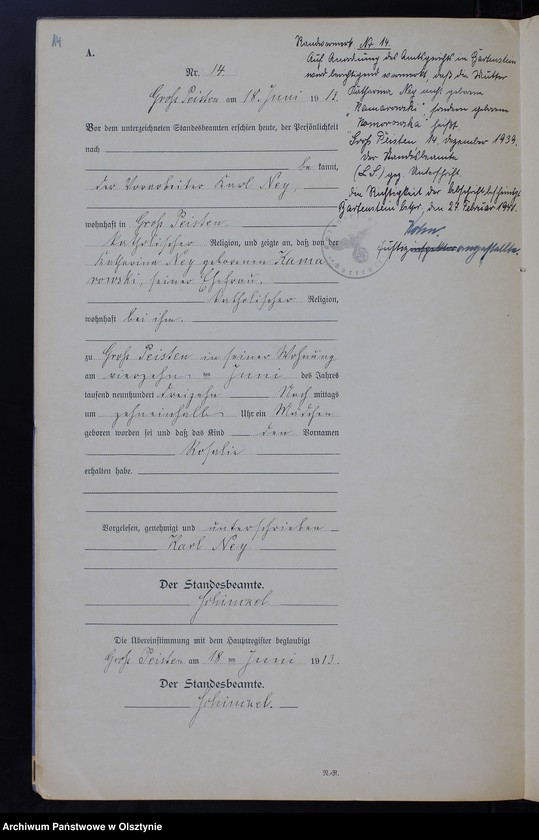 14
A.
Nr. 14.
Groß Peisten am 18. Juni 1913.
Vor dem unterzeichneten Standesbeamten erschien heute, der Persönlichkeit
nach
be kannt,
der Vorarbeiter Karl Ney,
wohnhaft in Groß Peisten
katholischer Religion, und zeigte an, daß von der
Katharina Ney geborenen Kama
rowski, seiner Ehefrau
katholischer Religion,
wohnhaft bei ihm
zu Groß Peisten in seiner Wohnung
am vierzehn ten Juni des Jahres
tausend neunhundert dreizehn Nach mittags
um zehneinhalb Uhr ein Mädchen
geboren worden sei und daß das Kind den Vornamen
Rosalie
erhalten habe.
Vorgelesen, genehmigt und unterschrieben
Karl Ney
Der Standesbeamte.
Schimkel
Die Übereinstimmung mit dem Hauptregister beglaubigt
Groß Peisten am 18 ten Juni 1913.
Der Standesbeamte.
Schimkel.
N.-R.
Randvermerk Nr. 14.
Auf Anordnung des Amtsgerichts in Bartenstein
wird berichtigend vermerkt, daß die Mutter
Katharina Ney nicht geborene
"Kamarowski" sondern geborene
"Komorowska" heißt.
Groß Peisten 14. Dezember 1939.
Der Standesbeamte
(L.S.) gez. Unterschrift.
Die Richtigkeit der Abschrift bescheinigt
Bartenstein Ostpr., den 27. Februar 1941.
Justizangestellte.
Archiwum Państwowe w Olsztynie